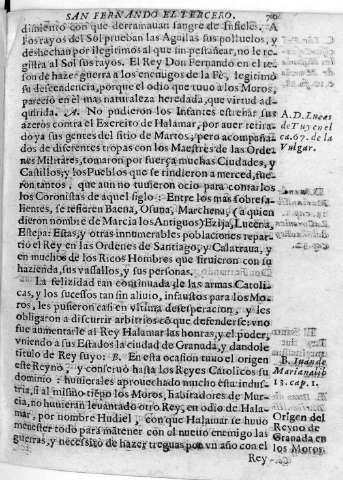 SAN FERNANDO EL TERCERO.
dimiento con que derramauan sangre de Infieles. A
los rayos del Sol prueban las Aguilas sus polluelos, y
deshechan por ilegitimos al que sin pestañear, no le re-
gistra al Sol sus rayos. El Rey Don Fernando en el te-
son de hazer guerra a los enemigos de la Fè, legitimò
su descendencia, porque el odio que tuuo a los Moros,
pareciò en èl mas naturaleza heredada, que virtud ad-
quirida. A. No pudieron los Infantes estrenar sus
azeros contra el Exercito de Halamar, por auer retira-
do ya sus gentes del sitio de Martos; pero acompaña-
dos de diferentes tropas con los Maestres de las Orde-
nes Militares, tomaron por fuerça muchas Ciudades, y
Castillos, y los Pueblos que se rindieron a merced, fue-
ron tantos, que aun no tuuieron ocio para contarlos
los Coronistas de aquel siglo: Entre los mas sobresa-
lientes, se refieren Baena, Osuna, Marchena, (a quien
dieron nombre de Marcia los Antiguos) Ezija, Lucena,
Estepa: Estas, y otras innumerables poblaciones repar-
tiò el Rey en las Ordenes de Santiago, y Calatraua, y
en muchos de los Ricos Hombres que siruieron con su
hazienda, sus vassallos, y sus personas.
La felizidad tan continuada de las armas Catoli-
cas, y los sucessos tan sin aliuio, infaustos para los Mo-
ros, les pusieron casi en vltima desesperacion, y les
obligaron a discurrir arbitrios cõ que defenderse: vno
fue aumentarle al Rey Halamar las honras, y el poder,
vniendo a sus Estados la ciudad de Granada, y dandole
titulo de Rey suyo: B. En esta ocasion tuuo el origen
este Reyno, y conseruò hasta los Reyes Catolicos su
dominio: huuierales aprouechado mucho esta indus-
tria, si al mismo tiẽpo los Moros, habitadores de Mur-
cia, no huuieran leuantado otro Rey, en odio de Hala-
mar, por nombre Hudiel, con que Halamar se huuo
menester todo para mãtener con el nueuo enemigo las
guerras, y necessitò de hazer treguas por vn año con el
Rey
A. D. Lucas
de Tuy en el
ca. 67. de la
Vulgar.
B. Iuan de
Mariana lib
12. cap. 1.
Origen del
Reyno de
Granada en
los Moros.